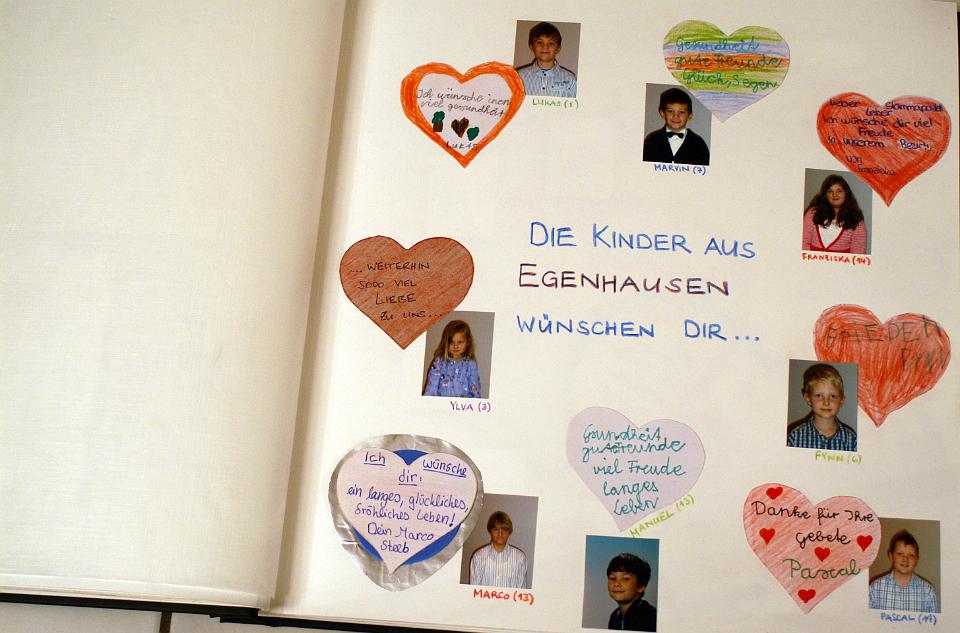 Ich wünsche inen
viel gesundheit
LUKAS
LUKAS (8)
Gesundheit
gute Freunde
Glück, Segen
MARVIN (7)
Lieber Stammapostel
Ich wünsche dir viel
Freude
in unserem Bezirk
von
Franziska
FRANZISKA (14)
DIE KINDER AUS
EGENHAUSEN
WÜNSCHEN DIR...
... WEITERHIN
SOOO VIEL
LIEBE
ZU UNS...
YLVA (3)
FRIEDEN
FYNN
FYNN (6)
Ich wünsche
dir:
ein langes, glückliches,
fröhliches Leben!
Dein Marco
Steeb
MARCO (13)
Gsundheit
gute Freunde
viel Freude
langes
Leben
MANUEL (13)
Danke für Ihre
Gebete
Pascal
PASCAL (11)